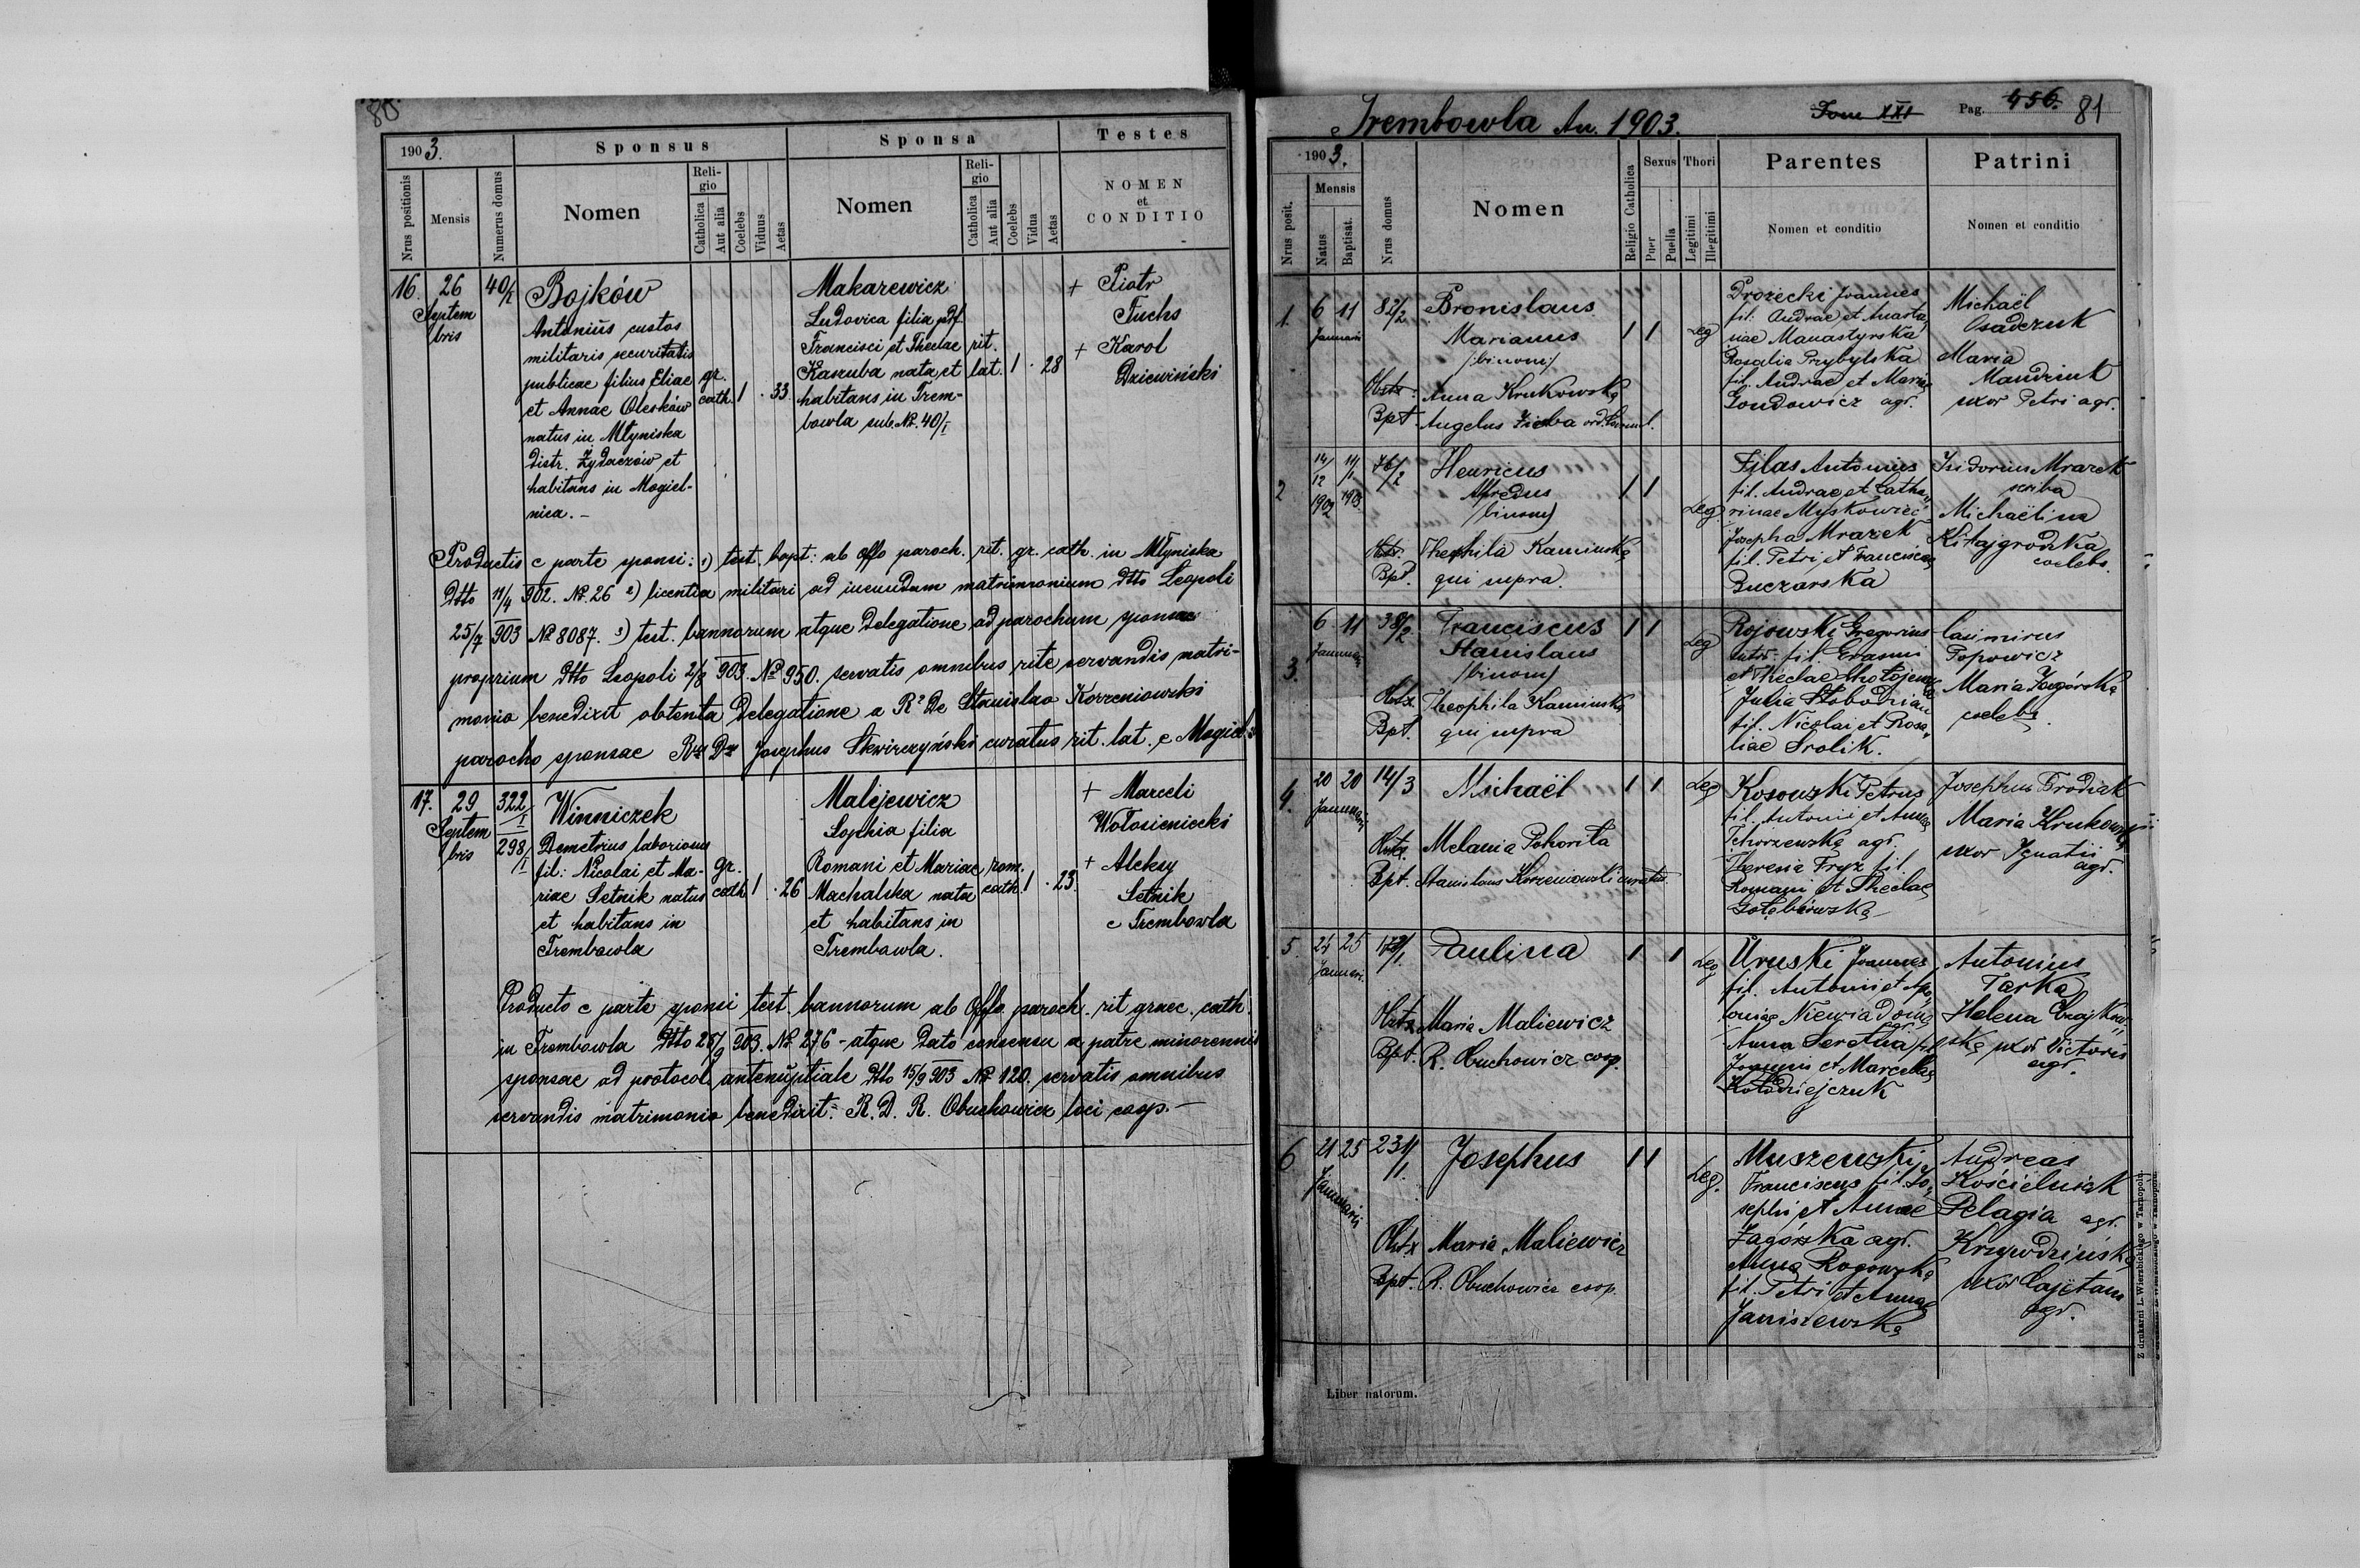 80.
1903.
Sponsus
Sponsa
Testes
Nrus positionis
Mensis
Numerus domus
Nomen
Religio
Catholica
Aut alia
Coelebs
Viduus
Aetas
Nomen
Religio
Catholica
Aut alia
Coelebs
Vidua
Aetas
NOMEN
et
CONDITIO
16.
26
Septem
bris
40/I
Bojków
Antonius custos
militaris securitatis
publicae filius Eliae
et Annae Olesków
natus in Młyniska
distr. Żydaczów et
habitans in Mogiel-
nica. -
gr.
cath.
1 . 33
Makarewicz
Ludovica filia pdf.
Francisci et Theclae
Kaszuba nata et
habitans in Trem-
bowla sub № 40/I
rit.
lat.
1 . 28
+ Piotr
Fuchs
+ Karol
Dziewiński
Productis e parte sponsi: 1) test. bapt: ab offo paroch. rit. gr. cath. in Młyniska
dtto 11/4 902. № 26 2) licentia militari ad ineundam matrimonium dtto Leopoli
25/7 903 № 8087. 3) test. bannorum atque delegatione ad parochum sponsae
proprium dtto Leopoli 2/8 903. № 950. servatis omnibus rite servandis matri-
monio benedixit obtenta delegatione a R. De Stanislao Korzeniowski
parocho sponsae Rus Dus Josephus Skwirczyński curatus rit. lat. e Mogiel
17.
29
Septem
bris
322/I
298/I
Winniczek
Demetrius laboriosus
fil: Nicolai et Ma-
riae Setnik natus
et habitans in
Trembowla
gr.
cath
1 . 26
Malijewicz
Sophia filia
Romani et Mariae
Machalska nata
et habitans in
Trembowla.
rom.
cath.
1 . 23
+ Marceli
Wołosieniecki
+ Aleksy
Setnik
e Trembowla
Producto e parte sponsi test. bannorum ab Offo paroch. rit graec. cath.
in Trembowla dtto 28/9 903. № 276 - atque dato consensu a patre minorennis
sponsae ad protocol. antenuptiale dtto 15/9 903 № 120. servatis omnibus
servandis matrimonio benedixit: R. D. R. Obuchowicz loci coop. -
Trembowla An. 1903.
Tom XXI
Pag. 456. 81
1903.
Nrus posit.
Mensis
Natus
Baptisat.
Nrus domus
Nomen
Religio Catholica
Sexus
Puer
Puella
Thori
Legitimi
Illegitimi
Parentes
Nomen et conditio
Patrini
Nomen et conditio
1.
6 11
Januarii
82/2
Bronislaus
Marianus
/binom/
Obstx. Anna Krukowska
Bpt. Angelus Zięba ord.
1 1
Leg
Drozecki Joannes
fil. Andrae et Anasta
siae Manastyrska
Rosalia Przybylska
fil. Andrae et Mariae
Gondowicz agr.
Michaël
Osadczuk
Maria
Mandziuk
uxor Petri agr.
2
14/12 1902
11/1 1903.
76/2
Henricus
Alfredus
/binom/
Obstx. Theophila Kamińska
Bpt. qui supra.
1 1
Leg.
Filas Antonius
fil. Andrae et Catha
rinae Myskowiec
Josepha Mrazek
fil. Petri et Franciscae
Buczarska
Isidorius Mrazek
scriba
Michaëlina
Kitajgrodzka
coelebs.
3.
6 11
Januarii
38/2
Franciscus
Stanislaus
/binom/
Obstx. Theophila Kamińska
Bpt. qui supra
1 1
Leg
Rojowski Gregorius
fil. Erasmi
et Theclae
Julia Słobodzian
fil. Nicolai et Rosa
liae Srolik.
Casimirus
Popowicz
Maria Zagórska
coelebs.
4.
20 20
Januarii
14/3
Michaël
Obstx. Melania Pohoriła
Bpt. Stanislaus Korzeniowski curatus
1 1
Leg
Kosowski Petrus
fil. Antonii et Annae
Tchorzewska agr.
Theresia Fryz fil.
Romani et Theclae
Gołębiowska
Josephus Brodiak
Maria Krukowska
uxor Ignatii
agr.
5.
24 25
Januarii
Paulina
Obstx Maria Maliewicz
Bpt. R. Obuchowicz coop.
1 1
Leg
Uruski Joannes
fil. Antonii et Apo
loniae Niewiadom
Anna Seretna fil
Joannis et Marcelae
Kołodziejczuk
Antonius
Tarka
Helena Czajkow
ska uxor Victoris
agr.
6
21 25
Januarii
231/1.
Josephus
Obstx Maria Maliewicz
Bpt. R. Obuchowicz coop.
1 1
Leg.
Muszewski
Franciscus fil. Jo
sephi et Annae
Zagórska agr.
Anna Rogowska
fil. Petri et Annae
Janiszewska
Andreas
Kościelniak
Pelagia agr.
Krzywdzińska
uxor Cajetani
agr.
Liber natorum.
Z drukarni L. Wierzbickiego w Tarnopolu.